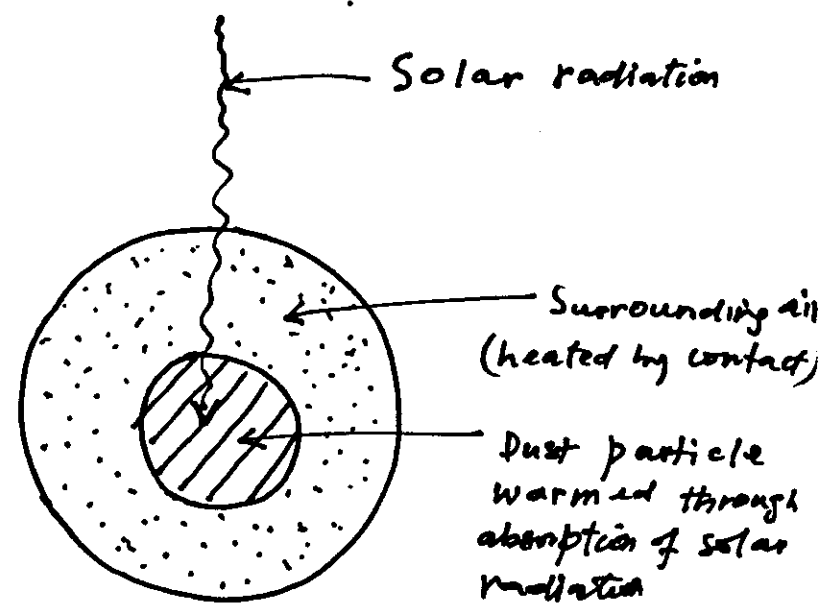 Solar radiation
Surrounding air
(heated by contact)
Dust particle
warmed through
absorption of solar
radiation